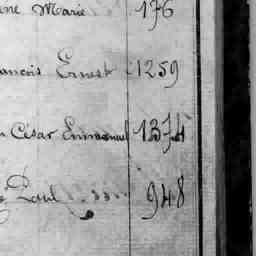 ne Marie 176
ancois Ernest 1259
César Emmanuel 1374
Paul 948